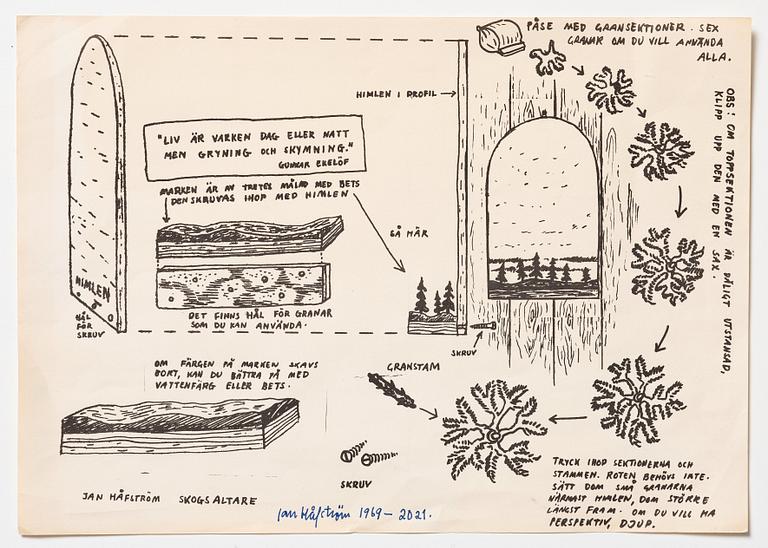 PÅSE MED GRANSEKTIONER. SEX
GRANAR OM DU VILL ANVÄNDA
ALLA.
OBS! OM TOPPSEKTIONEN ÄR DÅLIGT UTSTANSAD,
KLIPP UPP DEN MED EN SAX.
HIMLEN I PROFIL
"LIV ÄR VARKEN DAG ELLER NATT
MEN GRYNING OCH SKYMNING."
GUNNAR EKELÖF
MARKEN ÄR AV TRETEX MÅLAD MED BETS
DEN SKRUVAS IHOP MED HIMLEN
SÅ HÄR
HIMLEN
HÅL
FÖR
SKRUV
DET FINNS HÅL FÖR GRANAR
SOM DU KAN ANVÄNDA.
SKRUV
OM FÄRGEN PÅ MARKEN SKAVS
BORT, KAN DU BÄTTRA PÅ MED
VATTENFÄRG ELLER BETS.
GRANSTAM
SKRUV
TRYCK IHOP SEKTIONERNA OCH
STAMMEN. ROTEN BEHÖVS INTE.
SÄTT DOM SMÅ GRANARNA
NÄRMAST HIMLEN, DOM STÖRRE
LÄNGST FRAM. OM DU VILL HA
PERSPEKTIV, DJUP.
JAN HÅFSTRÖM SKOGSALTARE
Jan Håfström 1969 - 2021.